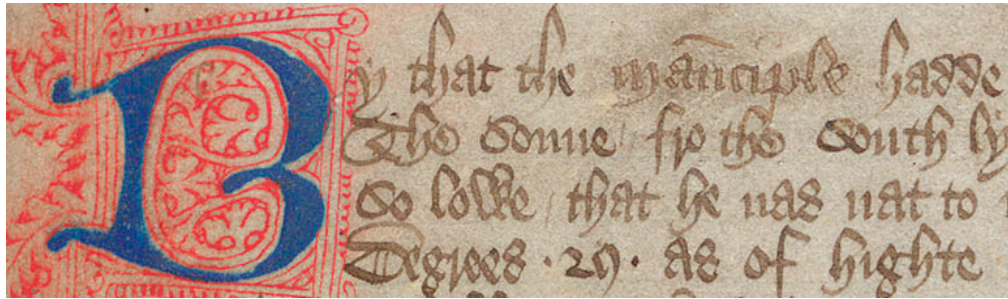 By that the mau̅ciple hadde
The Sonne fro the South ly
So lowe that he nas nat to
Degrees .29. as of highte